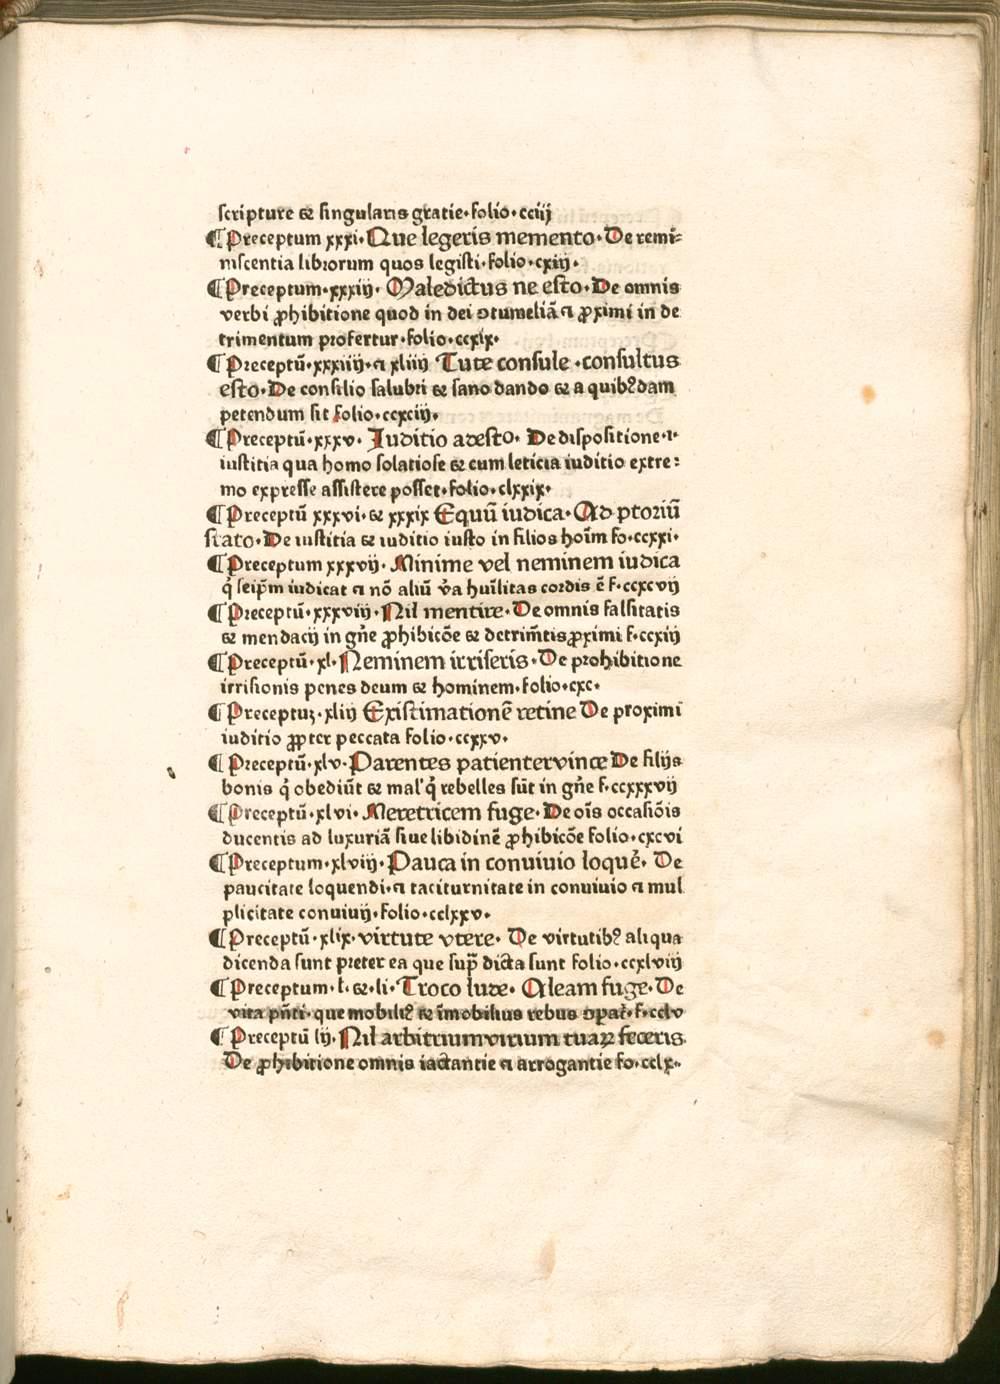 scripture ⁊ singularis gratie·folio·cciij
¶ Preceptum xxxi·Que legeris memento·De remi⸗
niscentia librorum quos legisti·folio·cxiij·
¶ Preceptum·xxxiij· Maledictus ne esto·De omnis
verbi ꝓhibitione quod in dei ↄtumeliā ⁊ ꝓximi in de
trimentum profertur·folio·ccxix·
¶ Preceptū·xxxiiij·⁊ xliiij Tute consule·consultus
esto·De consilio salubri ⁊ sano dando ⁊ a quibꝰdam
petendum sit folio·ccxciij·
¶ Preceptū·xxxv· Iuditio adesto· De dispositione·i·
iustitia qua homo solatiose ⁊ cum leticia iuditio extre⸗
mo expresse assistere posset·folio·clxxix·
¶ Preceptū xxxvi·⁊ xxxix Equū iudica·Ad ptoriū
stato·De iustitia ⁊ iuditio iusto in filios hoīm fo·ccxxi·
¶ Preceptum xxxvij· Minime vel neminem iudica
q̇ seip̄m iudicat ⁊ nō aliū v̄a hūilitas cordis ē f·ccxcvij
¶ Preceptū·xxxviij·Nil mentire·De omnis falsitatis
⁊ mendacij in gn̄e ꝓhibicōe ⁊ detrim̄tis ꝓximi f·ccxiij
¶ Preceptū·xl·Neminem irriseris·De prohibitione
irrisionis penes deum ⁊ hominem·folio·cxc·
¶ Preceptuꝫ·xliij Existimationē retine De proximi
iuditio ꝓpter peccata folio·ccxxv·
¶ Preceptū·xlv·Parentes patienter vince De filijs
bonis q̇ obediūt ⁊ mal' q̇ rebelles sūt in gn̄e f·ccxxxvij
¶ Preceptū·xlvi·Meretricem fuge·De oīs occasiōis
ducentis ad luxuriā siue libidinē ꝓhibicōe folio·cxcvi
¶ Preceptum·xlviij·Pauca in conuiuio loquē· De
paucitate loquendi·⁊ taciturnitate in conuiuio ⁊ mul
plicitate conuiuij·folio·cclxxv·
¶ Preceptū·xlix·virtute vtere· De virtutibꝰ aliqua
dicenda sunt preter ea que sup̄ dicta sunt folio·ccxlviij
¶ Preceptum·l·⁊·li·Troco lude· Aleam fuge·De
vita pn̄ti·que mobilꝰ ⁊ īmobilius rebus ↄpat·f·cclv
¶ Preceptū lij·Nil arbitrium virium tuaꝝ feceris
De ꝓhibitione omnis iactantie ⁊ arrogantie fo·cclx·